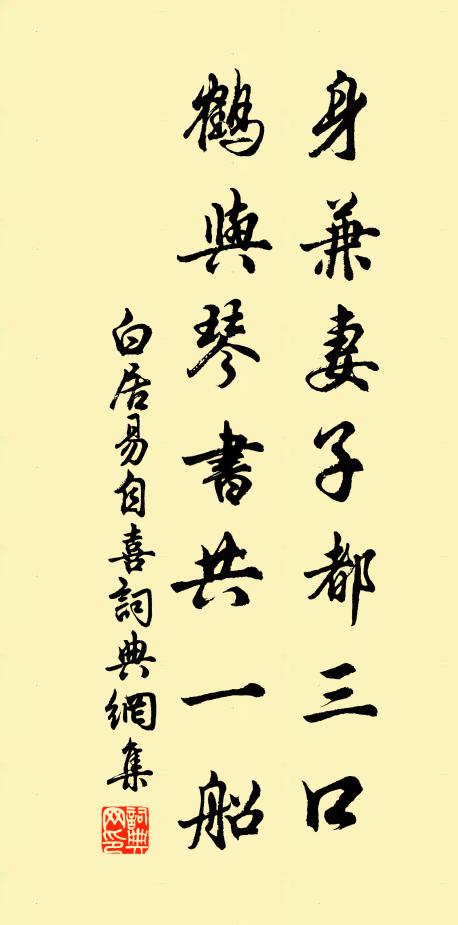 身兼妻子都三口
鶴與琴書共一船
白居易自喜詞典網集
詞典网印